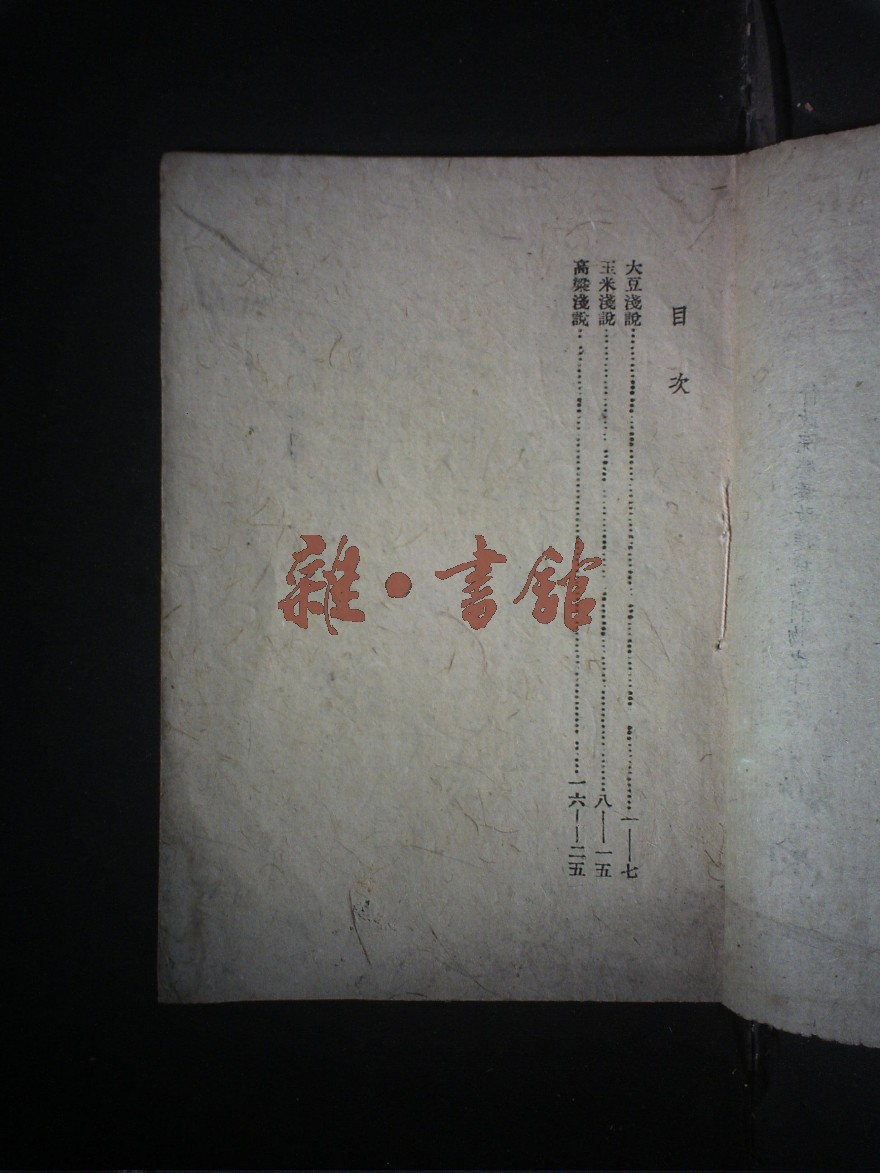 目次
大豆淺說……一——七
玉米淺說……八——一五
高粱淺說……一六——二五
雜·書舘